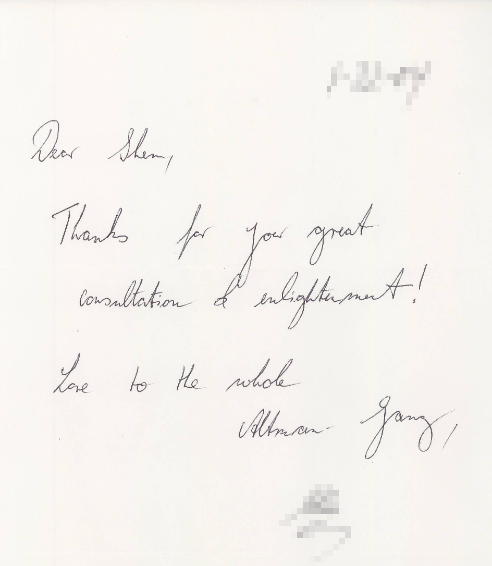 Dear Shem,
Thanks for your great
consultation & enlightenment!
Love to the whole
Altman Gang,